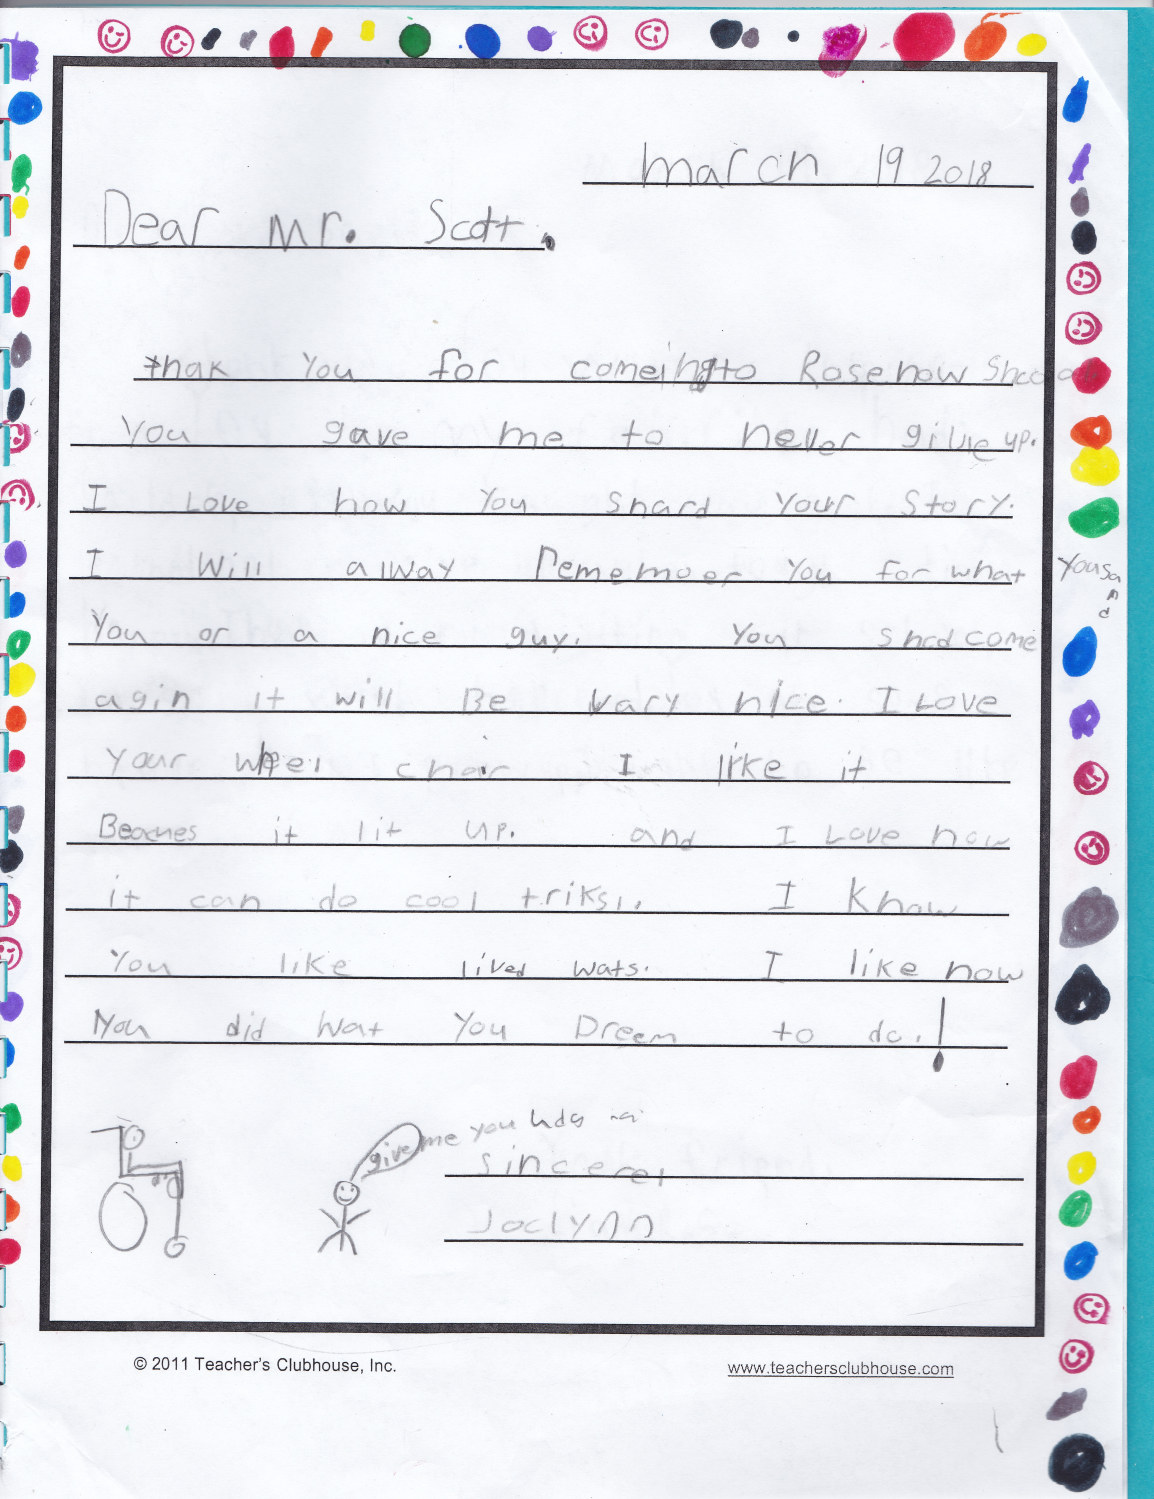 March 19 2018
Dear Mr. Scott.
thak you for comeing to Rosenow Shcool
You gave me to never give up.
I Love how you shard your story.
I will allway rememoer you for what you sand
You or a nice guy. You shcd come
agin it will Be vary nice. I Love
your wheel chair I like it
Beacues it lit up. and I Love how
it can do cool triks!.. I know
You like lived wats. I like how
You did wat you Dreem to do.!
give me you hdg
sincerel
Joclynn
© 2011 Teacher's Clubhouse, Inc.
www.teachersclubhouse.com